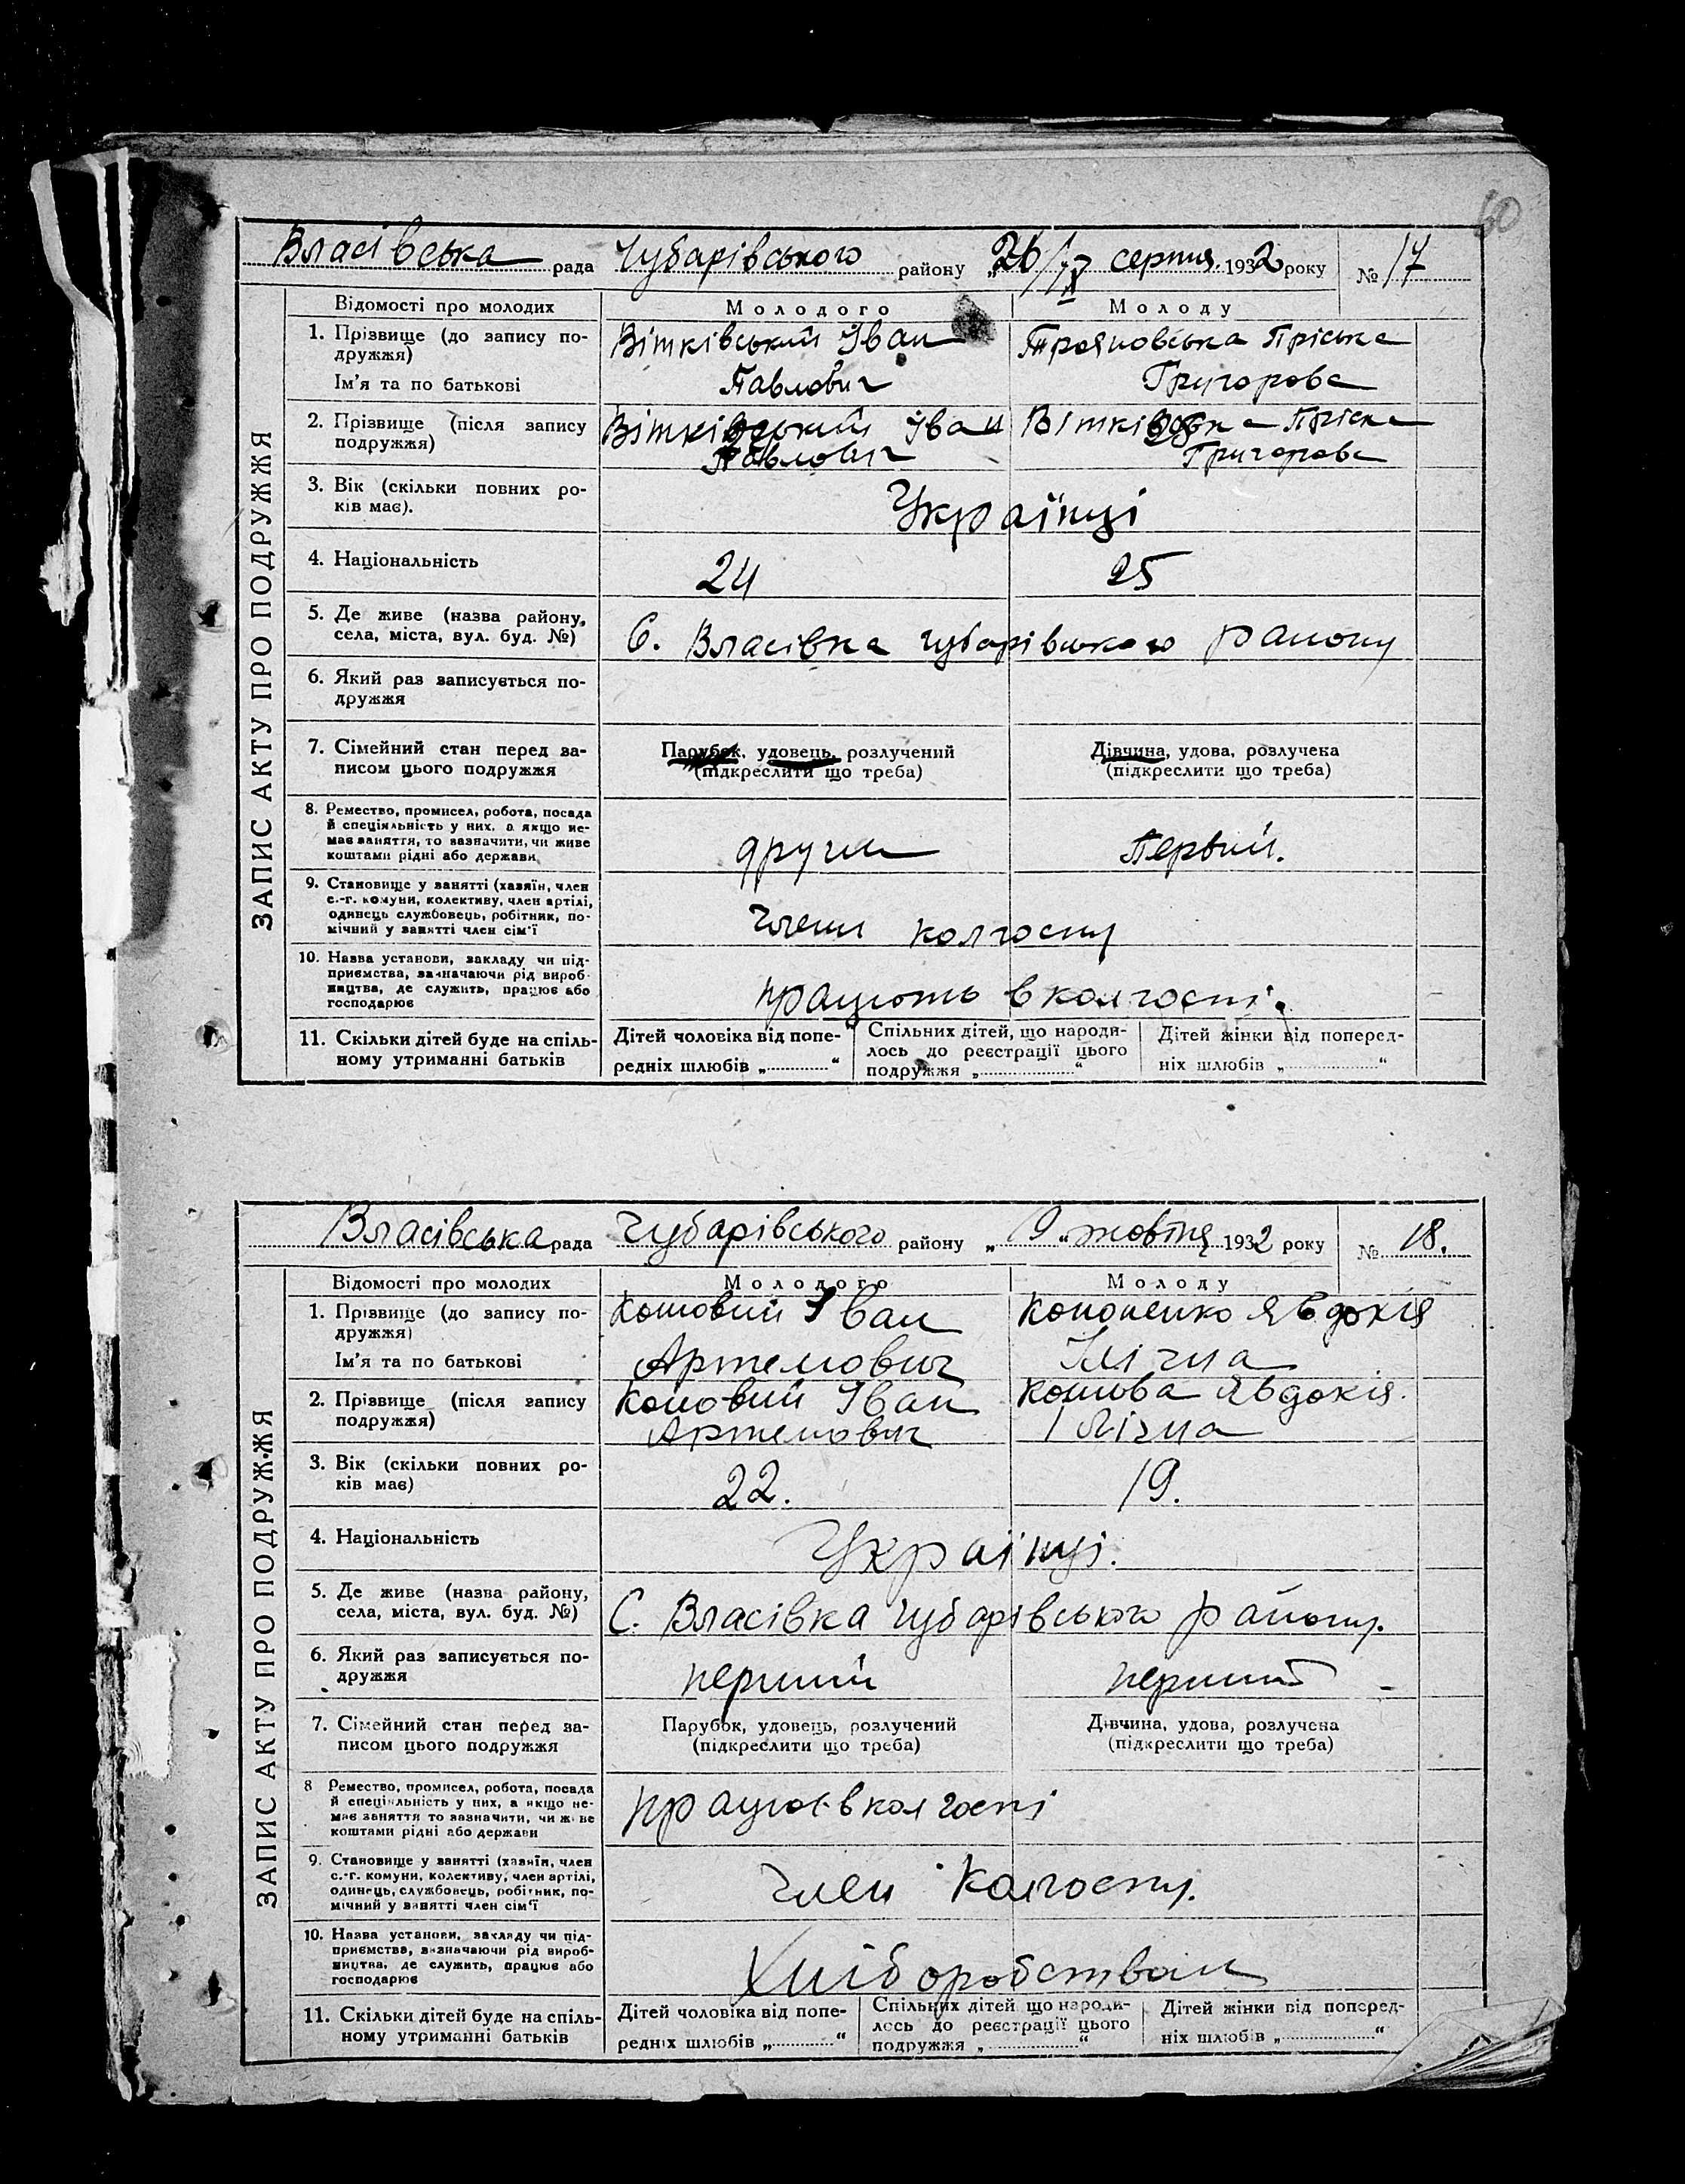 60
Власівська рада Чубарівського району „26/ серпня 1932 року № 17
ЗАПИС АКТУ ПРО ПОДРУЖЖЯ
Відомості про молодих Молодого Молоду
1. Прізвище (до запису по- Вітківський Іван Трояновська Пріська
дружжя)
Ім'я та по батькові Павлович Григорова
2. Прізвище (після запису Вітківський Іван Вітківська Пріска
подружжя) Павлович Григорова
3. Вік (скільки повних ро-
ків має). Українці
4. Національність 24 25
5. Де живе (назва району,
села, міста, вул. буд. №) С. Власівка Чубарівського району
6. Який раз записується по-
дружжя
7. Сімейний стан перед за- Парубок, удовець, розлучений Дівчина, удова, розлучена
писом цього подружжя (підкреслити що треба) (підкреслити що треба)
8. Ремество, промисел, робота, посада
й спеціяльність у них, а якщо не-
має заняття, то зазначити, чи живе другий Первий.
коштами рідні або держави
9. Становище у занятті (хазяїн, член
с.-г. комуни, колективу, член артілі,
одинець службовець, робітник, по- члени колгоспу
мічний у занятті член сім'ї
10. Назва установи, закладу чи під-
приємства, зазначаючи рід вироб-
ництва, де служить, працює або працюють в колгоспі.
господарює
11. Скільки дітей буде на спіль- Дітей чоловіка від попе- Спільних дітей, що народи- Дітей жінки від поперед-
ному утриманні батьків редніх шлюбів „............“ лось до реєстрації цього ніх шлюбів „............“
подружжя „............“
Власівська рада Чубарівського району „9“ жовтня 1932 року № 18.
ЗАПИС АКТУ ПРО ПОДРУЖЖЯ
Відомості про молодих Молодого Молоду
1. Прізвище (до запису по- Кошовий Іван Кононенко Явдокія
дружжя)
Ім'я та по батькові Артемович Ілічна
2. Прізвище (після запису Кошовий Іван Кошова Явдокія.
подружжя) Артемович Ілічна
3. Вік (скільки повних ро-
ків має) 22. 19.
4. Національність Українці.
5. Де живе (назва району,
села, міста, вул. буд. №) С. Власівка Чубарівського району.
6. Який раз записується по-
дружжя перший перший
7. Сімейний стан перед за- Парубок, удовець, розлучений Дівчина, удова, розлучена
писом цього подружжя (підкреслити що треба) (підкреслити що треба)
8 Ремество, промисел, робота, посада
й спеціяльність у них, а якщо не-
має заняття то зазначити, чи живе працює в колгоспі
коштами рідні або держави
9. Становище у занятті (хазяїн, член
с.-г. комуни, колективу, член артілі,
одинець, службовець, робітник, по- член Колгоспу.
мічний у занятті член сім'ї
10. Назва установи, закладу чи під-
приємства, зазначаючи рід вироб-
ництва, де служить, працює або Хліборобством
господарює
11. Скільки дітей буде на спіль- Дітей чоловіка від попе- Спільних дітей що народи- Дітей жінки від поперед-
ному утриманні батьків редніх шлюбів „............“ лось до реєстрації цього ніх шлюбів „............“
подружжя „............“